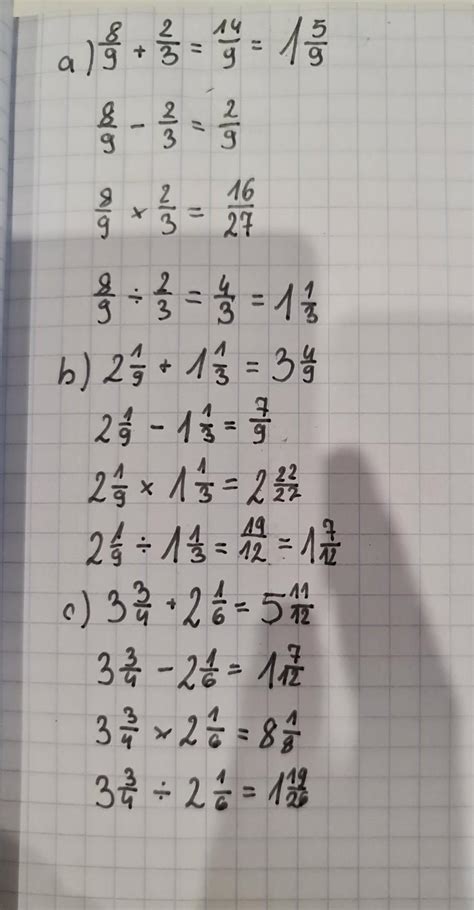 a) 8/9 + 2/3 = 14/9 = 1 5/9
8/9 - 2/3 = 2/9
8/9 × 2/3 = 16/27
8/9 ÷ 2/3 = 4/3 = 1 1/3
b) 2 1/9 + 1 1/3 = 3 4/9
2 1/9 - 1 1/3 = 7/9
2 1/9 × 1 1/3 = 2 22/27
2 1/9 ÷ 1 1/3 = 19/12 = 1 7/12
c) 3 3/4 + 2 1/6 = 5 11/12
3 3/4 - 2 1/6 = 1 7/12
3 3/4 × 2 1/6 = 8 1/8
3 3/4 ÷ 2 1/6 = 1 19/26